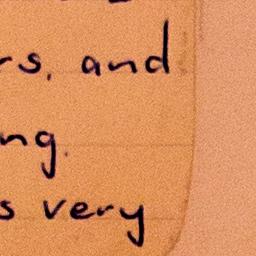 rs, and
ng.
s very